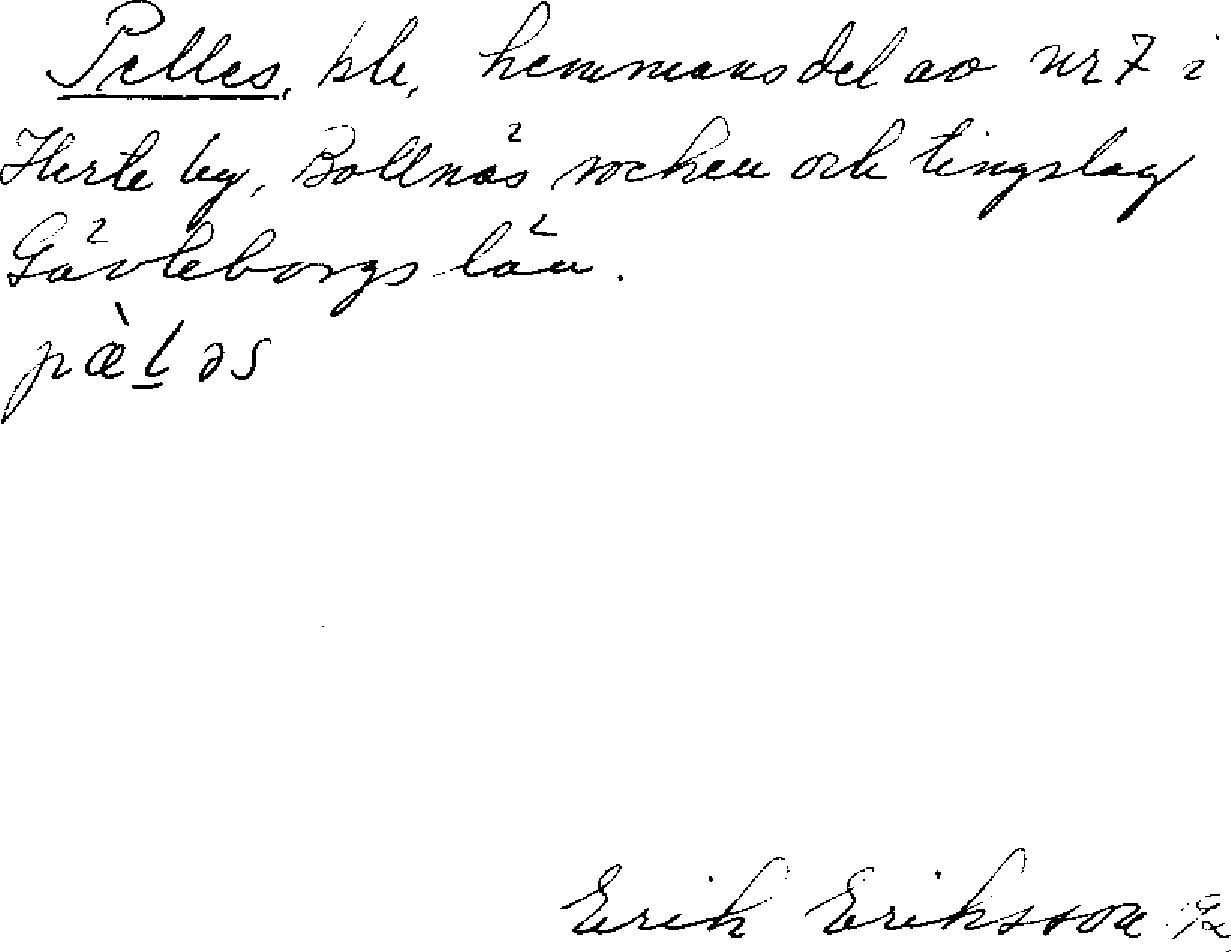 Pelles, ble, hemmansdel av nr 7 i
Herte by, Bollnäs socken och tingslag
Gävleborgs län.
pæ̀l̲əs
Erik Eriksson